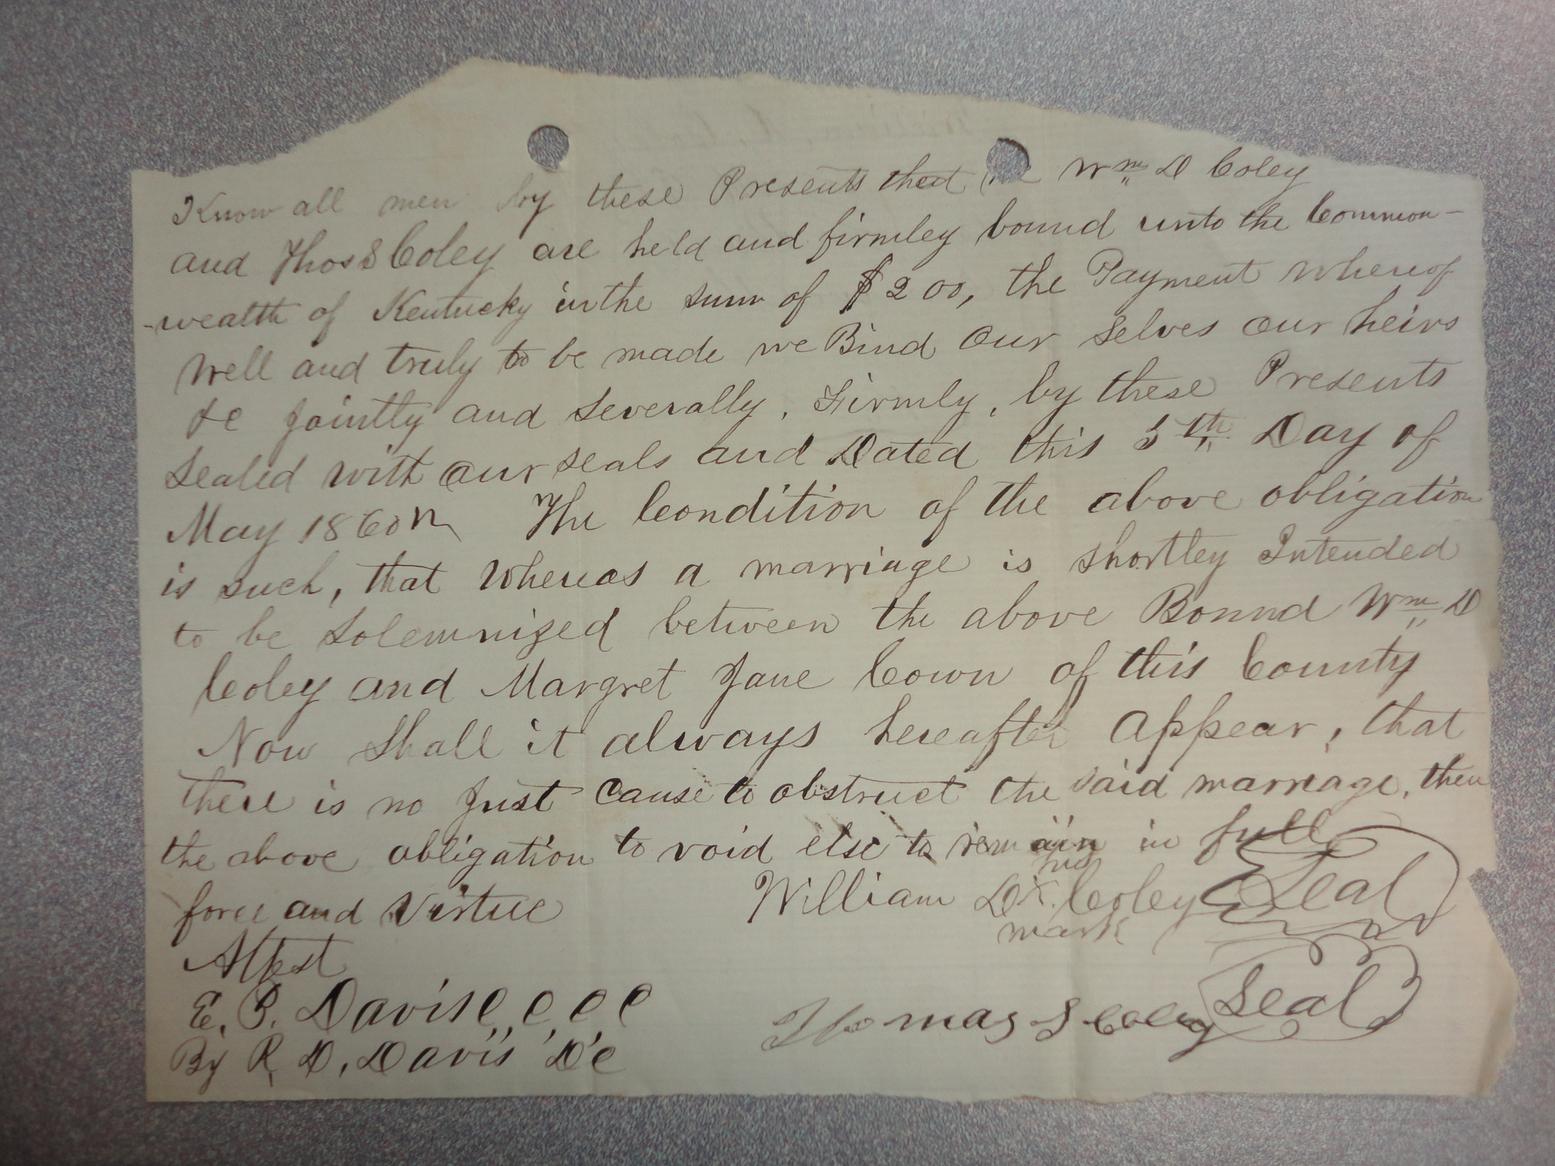 Know all men by these Presents that we Wm D Coley
and Thos S Coley are held and firmley bound unto the Common-
-wealth of Kentucky in the sum of $200, the Payment whereof
well and truly to be made we Bind our selves our heirs
&c jointly and severally, Firmly, by these Presents
Sealed with our seals and Dated this 5th Day of
May 1860 The Condition of the above obligation
is such, that whereas a marriage is shortley Intended
to be Solemnized between the above Bound Wm D
Coley and Margret Jane Cown of this County
Now Shall it always hereafter appear, that
there is no Just cause to obstruct the said marriage, then
the above obligation to void else to remain in full
force and Virtue
his
William D X Coley Seal
mark
Attest
E. P. Davis C C C C
Thomas S Coley Seal
By R. D. Davis D C